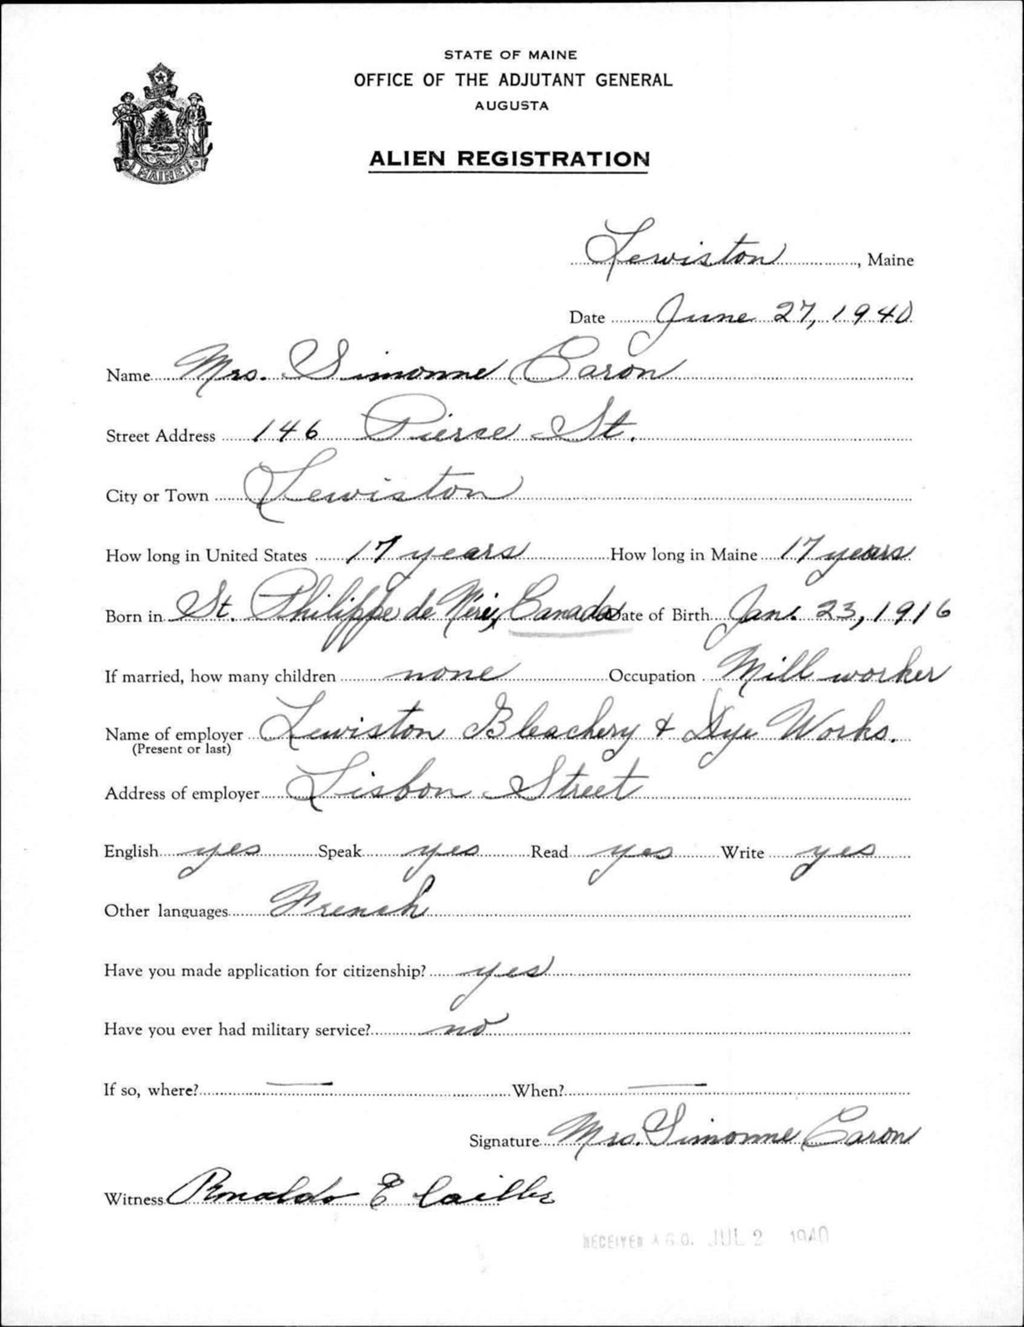 STATE OF MAINE
OFFICE OF THE ADJUTANT GENERAL
AUGUSTA
ALIEN REGISTRATION
MAINE
Lewiston, Maine
Date June 27, 1940
Name Mrs. Simonne Caron
Street Address 146 Pierce St.
City or Town Lewiston
How long in United States 17 years How long in Maine 17 years
Born in St. Philippe de Néri, Canada Date of Birth Jan. 23, 1916
If married, how many children none Occupation Mill worker
Name of employer Lewiston Bleachery & Dye Works.
(Present or last)
Address of employer Lisbon Street
English yes Speak yes Read yes Write yes
Other languages French
Have you made application for citizenship? yes
Have you ever had military service? no
If so, where? — When? —
Signature Mrs. Simonne Caron
Witness Ronaldo E
RECEIVED A.G.O. JUL 2 1940